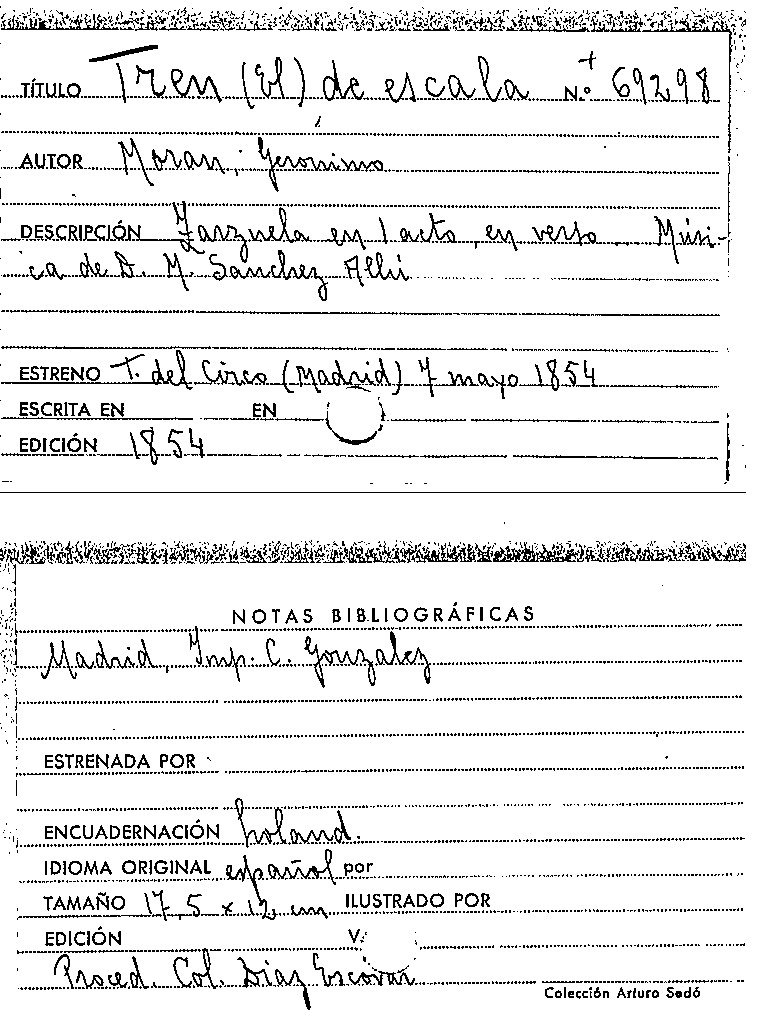 TÍTULO Tren (El) de escala N.º + 69298
AUTOR Moran, Gerónimo
DESCRIPCIÓN Zarzuela en 1 acto, en verso. Músi-
ca de D. M. Sanchez Allú
ESTRENO T. del Circo (Madrid) 7 mayo 1854
ESCRITA EN EN
EDICIÓN 1854
NOTAS BIBLIOGRÁFICAS
Madrid, Imp. C. Gonzalez
ESTRENADA POR
ENCUADERNACIÓN holand.
IDIOMA ORIGINAL español por
TAMAÑO 17,5 x 12 cm ILUSTRADO POR
EDICIÓN V.
Proced. Col. Diaz Escovar
Colección Arturo Sedó